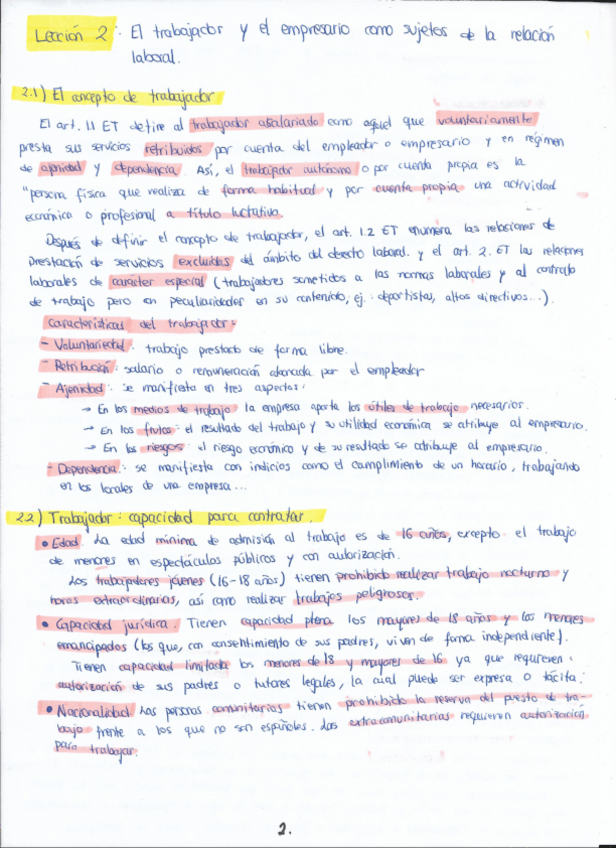 Lección 2: El trabajador y el empresario como sujetos de la relación
laboral.
2.1) El concepto de trabajador
El art. 1.1 ET define al trabajador asalariado como aquel que voluntariamente
presta sus servicios retribuidos por cuenta del empleador o empresario y en régimen
de ajenidad y dependencia. Así, el trabajador autónomo o por cuenta propia es la
"persona física que realiza de forma habitual y por cuenta propia una actividad
económica o profesional a título lucrativo.
Después de definir el concepto de trabajador, el art. 1.2 ET enumera las relaciones de
prestación de servicios excluidas del ámbito del derecho laboral. y el art. 2. ET las relaciones
laborales de carácter especial (trabajadores sometidos a las normas laborales y al contrato
de trabajo pero con peculiaridades en su contenido, ej.: deportistas, altos directivos...).
Características del trabajador:
- Voluntariedad: trabajo prestado de forma libre.
- Retribución: salario o remuneración abonada por el empleador
- Ajenidad: se manifiesta en tres aspectos:
→ En los medios de trabajo: la empresa aporta los útiles de trabajo necesarios.
→ En los frutos: el resultado del trabajo y su utilidad económica se atribuye al empresario.
→ En los riesgos: el riesgo económico y de su resultado se atribuye al empresario.
- Dependencia: se manifiesta con indicios como el cumplimiento de un horario, trabajando
en los locales de una empresa...
2.2) Trabajador: capacidad para contratar.
• Edad. La edad mínima de admisión al trabajo es de 16 años, excepto: el trabajo
de menores en espectáculos públicos y con autorización.
Los trabajadores jóvenes (16-18 años) tienen prohibido realizar trabajo nocturno y
horas extraordinarias, así como realizar trabajos peligrosos.
• Capacidad jurídica. Tienen capacidad plena los mayores de 18 años y los menores
emancipados (los que, con consentimiento de sus padres, viven de forma independiente).
Tienen capacidad limitada los menores de 18 y mayores de 16 ya que requieren
autorización de sus padres o tutores legales, la cual puede ser expresa o tácita.
• Nacionalidad Las personas comunitarias tienen prohibido la reserva del puesto de tra-
bajo frente a los que no son españoles. Los extracomunitarias requieren autorización
para trabajar.
2.